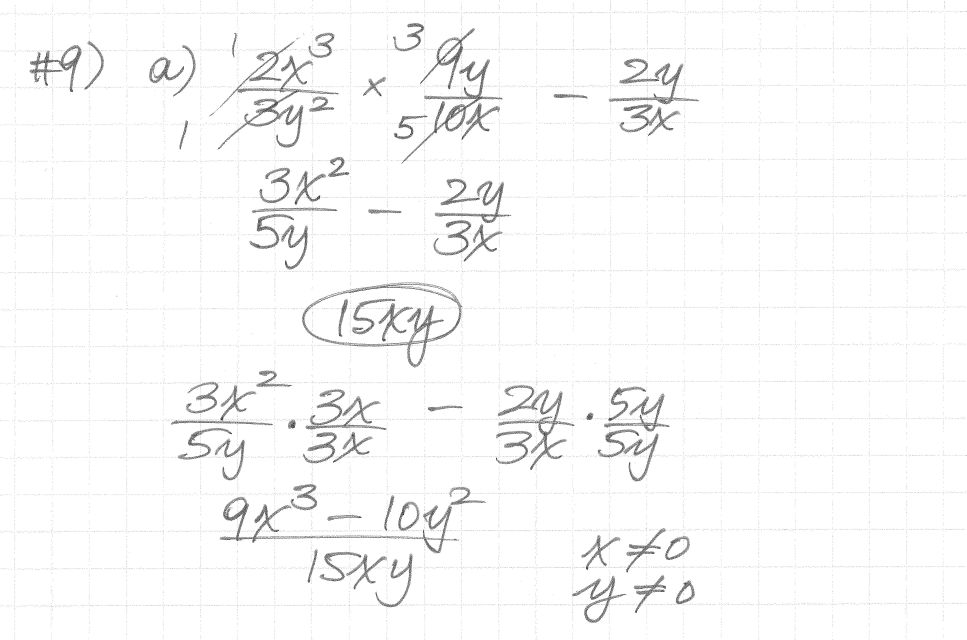 #9) a) 1 2x³/3y² 1 × 3 9y/10x 5 − 2y/3x
3x²/5y − 2y/3x
15xy
3x²/5y · 3x/3x − 2y/3x · 5y/5y
(9x³ − 10y²)/15xy
x ≠ 0
y ≠ 0